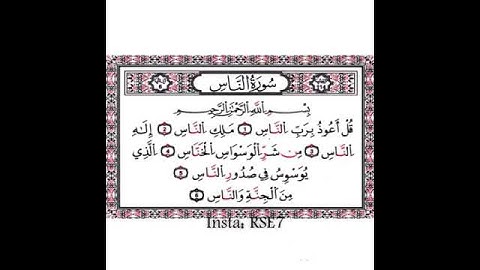 سُورَةُ النَّاسِ
بِسْمِ اللَّهِ الرَّحْمَٰنِ الرَّحِيمِ
قُلْ أَعُوذُ بِرَبِّ النَّاسِ ١ مَلِكِ النَّاسِ ٢ إِلَٰهِ
النَّاسِ ٣ مِن شَرِّ الْوَسْوَاسِ الْخَنَّاسِ ٤ الَّذِي
يُوَسْوِسُ فِي صُدُورِ النَّاسِ ٥
مِنَ الْجِنَّةِ وَالنَّاسِ ٦
Insta; RSE7